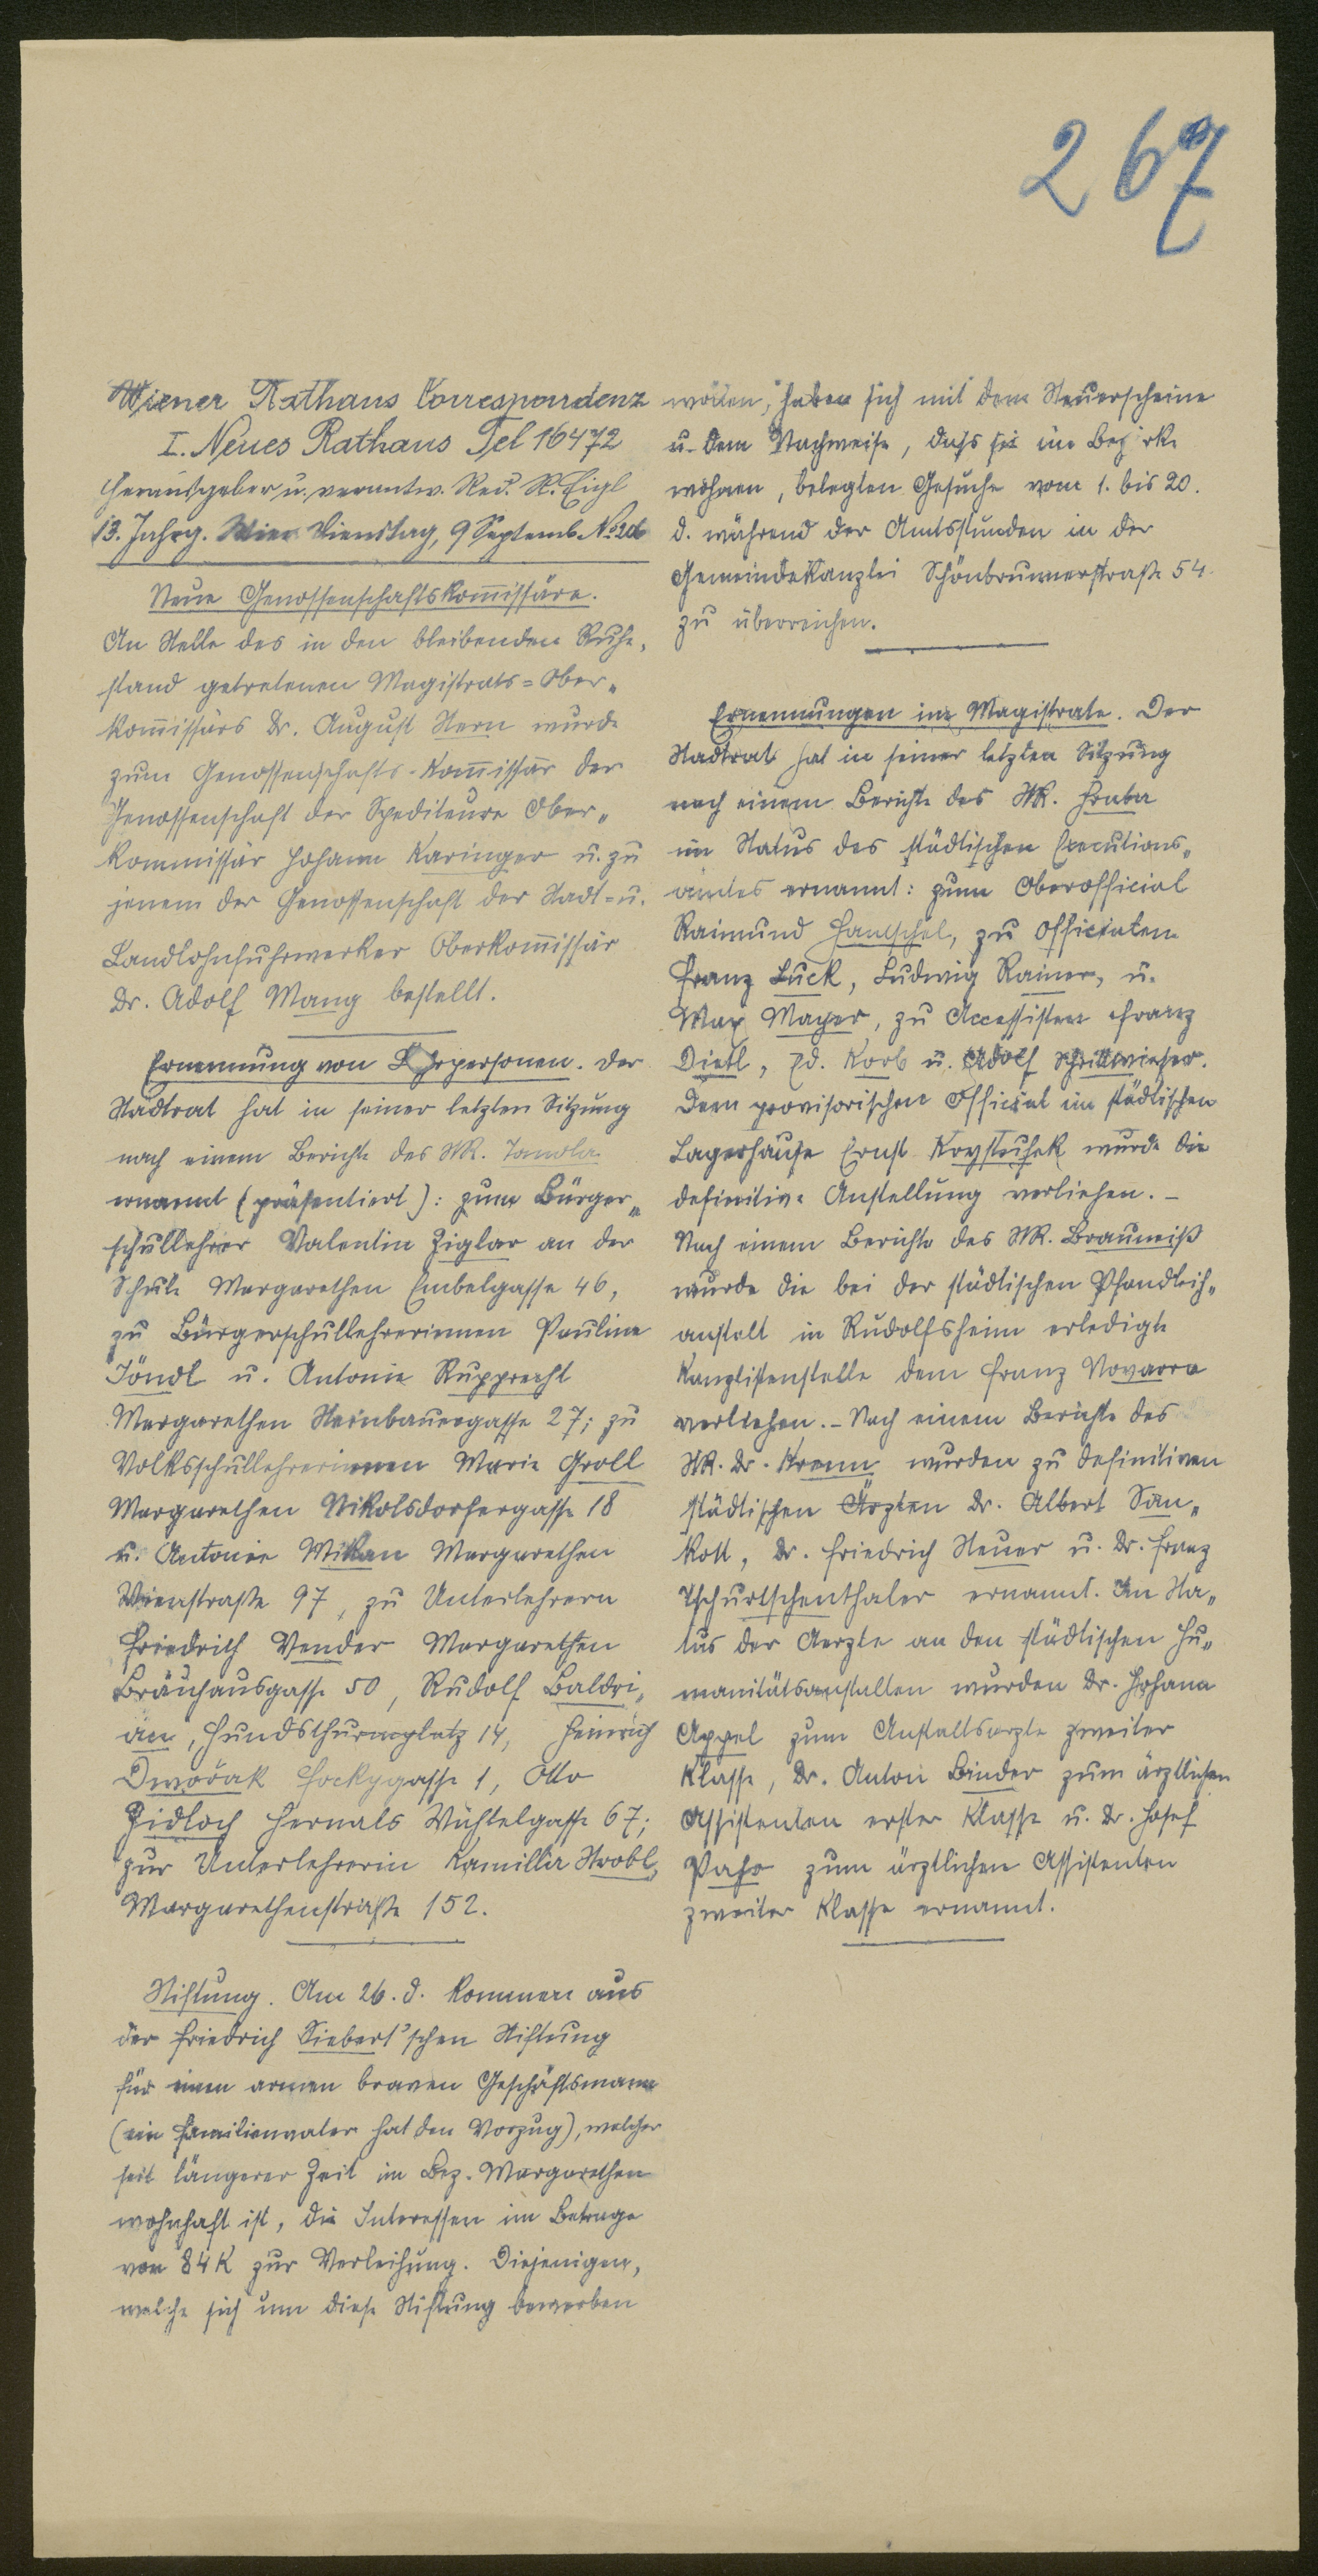 267
Wiener Rathaus Correspondenz
I. Neues Rathaus Tel 16472
Herausgeber u. verantw. Red. R. Eigl
13. Jahrg. Wien Dienstag, 9 Septemb. No 206
Neue Genossenschaftskom̅issäre.
An Stelle des in den bleibenden Ruhe„
stand getretenen Magistrats=Ober„
kom̅issärs Dr. August Stern wurde
zum Genossenschafts-Kom̅issär der
Genossenschaft der Spediteure Ober„
kommissär Johann Karinger u. zu
jenem der Genossenschaft der Stadt=u.
Landlohnfuhrwerker Oberkom̅issär
Dr. Adolf Mang bestellt.
Ernennung von Lehrpersonen. Der
Stadtrat hat in seiner letzten Sitzung
nach einem Berichte des StR. Tomola
ernannt (präsentiert): zum Bürger„
schullehrer Valentin Ziglar an der
Schule Margarethen Embelgasse 46,
zu Bürgerschullehrerinnen Pauline
Jöndl u. Antonie Rupprecht
Margarethen Steinbauergasse 27; zu
Volksschullehrerinnen Marie Groll
Margarethen Nikolsdorfergasse 18
u. Antonie Mikan Margarethen
Wienstraße 97, zu Unterlehrern
Friedrich Wender Margarethen
Bräuhausgasse 50, Rudolf Baldri„
an, Hundsthurmplatz 14, Heinrich
Dwořak Fockygasse 1, Otto
Zidloch Hernals Wichtelgasse 67;
zur Unterlehrerin Kamilla Strobl,
Margarethenstraße 152.
Stiftung. Am 26. d. kommen aus
der Friedrich Siebert'schen Stiftung
für einen armen braven Geschäftsmann
(ein Familienvater hat den Vorzug), welcher
seit längerer Zeit im Bez. Margarethen
wohnhaft ist, die Interessen im Betrage
von 84 K zur Verleihung. Diejenigen,
welche sich um diese Stiftung bewerben
wollen, haben sich mit dem Steuerscheine
u. dem Nachweise, daß sie im Bezirke
wohnen, belegten Gesuche vom 1. bis 20.
d. während der Amtsstunden in der
Gemeindekanzlei Schönbrunnerstraße 54
zu überreichen.
Ernennungen im Magistrate. Der
Stadtrat hat in seiner letzten Sitzung
nach einem Berichte des StR. Hraba
im Status des städtischen Executions„
amtes ernannt: zum Oberofficial
Raimund Hantschel, zu Officialen
Franz Luck, Ludwig Rainer, u.
Max Mayer, zu Accessisten Franz
Dietl, Ed. Korb u. Adolf Schrittwieser.
Dem provisorischen Official im städtischen
Lagerhause Ernst Koystuhek wurde die
definitive Anstellung verliehen. –
Nach einem Berichte des StR. Brauneiß
wurde die bei der städtischen Pfandleih„
anstalt in Rudolfsheim erledigte
Kanzlistenstelle dem Franz Novarra
verliehen. – Nach einem Berichte des
StR. Dr. Krenn wurden zu definitiven
städtischen Ärzten Dr. Albert San„
kott, Dr. Friedrich Steuer u. Dr. Franz
Tschurtschenthaler ernannt. Im Sta„
tus der Aerzte an den städtischen Hu„
manitätsanstalten wurden Dr. Johann
Appel zum Anstaltsarzte zweiter
Klasse, Dr. Anton Binder zum ärztlichen
Assistenten erster Klasse u. Dr. Josef
Paho zum ärztlichen Assistenten
zweiter Klasse ernannt.